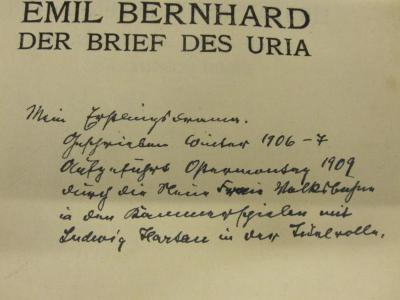 EMIL BERNHARD
DER BRIEF DES URIA
Mein Erstlingsdrama.
Geschrieben Winter 1906-7
Aufgeführt Ostermontag 1909
durch die Neue Freie Volksbühne
in den Kammerspielen mit
Ludwig Hartau in der Titelrolle.